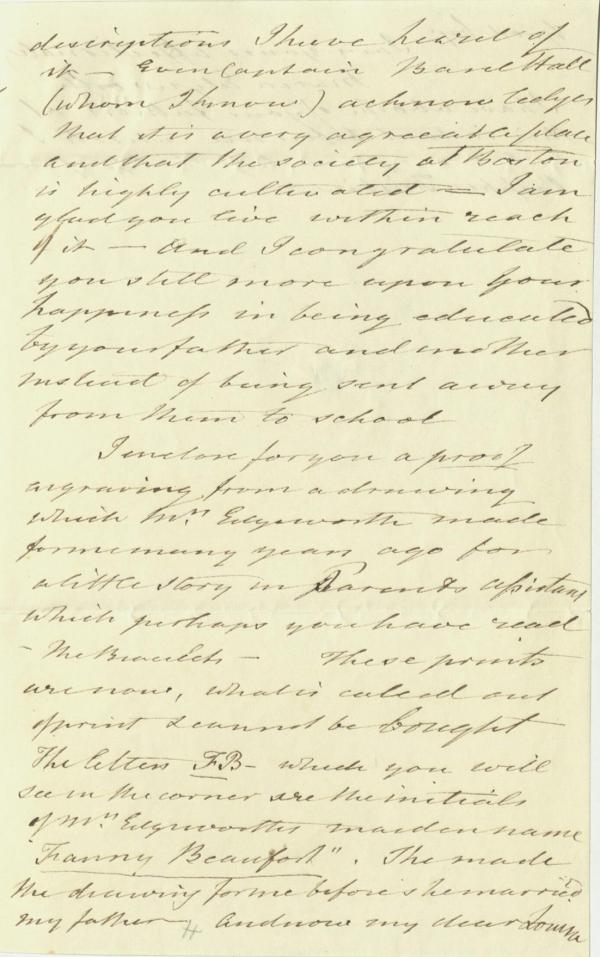 descriptions I have heard of
it – Even Captain Basil Hall
(whom I know) acknowledges
that it is a very agreeable place
and that the society at Boston
is highly cultivated = I am
glad you live within reach
of it — And I congratulate
you still more upon your
happiness in being educated
by your father and mother
instead of being sent away
from them to school
I enclose for you a proof
engraving from a drawing
which Mrs Edgeworth made
for me many years ago for
a little story in Parents Assistant
which perhaps you have read
– The Bracelets – These prints
are now, what is called out
of print & cannot be bought
The letters FB – which you will
see in the corner are the initials
of Mrs Edgeworths maiden name
"Fanny Beaufort". She made
the drawing for me before she married
my father – And now my dear Louisa